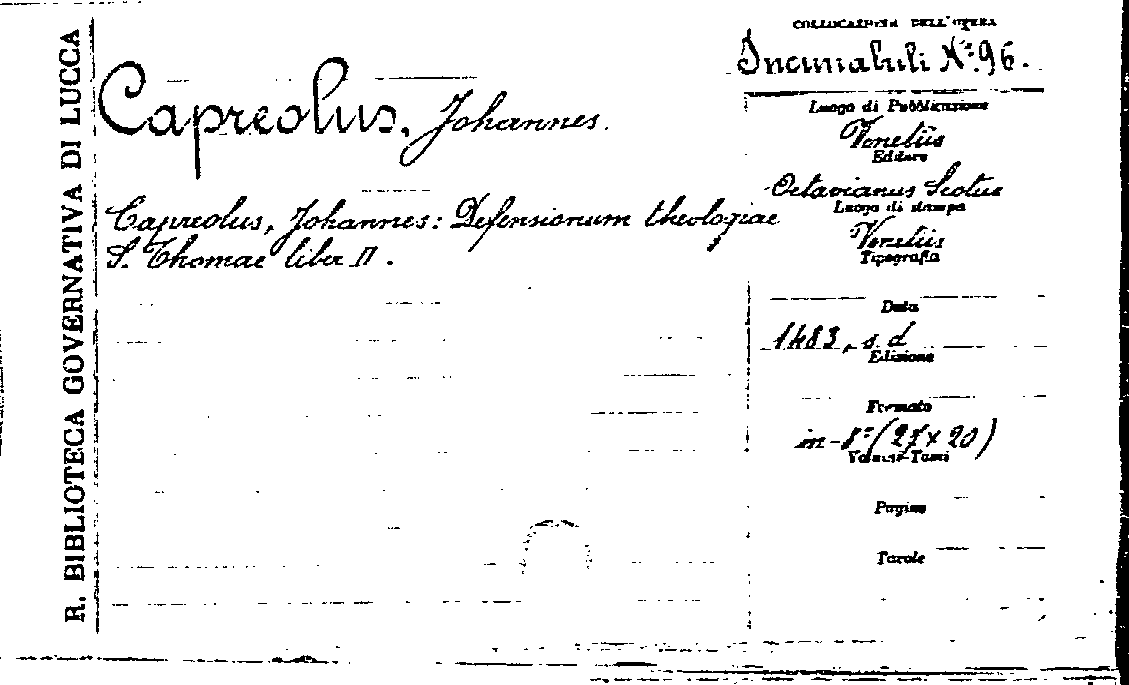 R. BIBLIOTECA GOVERNATIVA DI LUCCA
Capreolus, Johannes.
Capreolus, Johannes: Defensionum theologiae
S. Thomae liber II.
COLLOCAZIONE DELL'OPERA
Incunabuli Nº. 96.
Luogo di Pubblicazione
Venetiis
Editore
Octavianus Scotus
Luogo di stampa
Venetiis
Tipografia
Data
1483, s d
Edizione
Formato
in-8º (27 x 20)
Volumi-Tomi
Pagine
Tavole